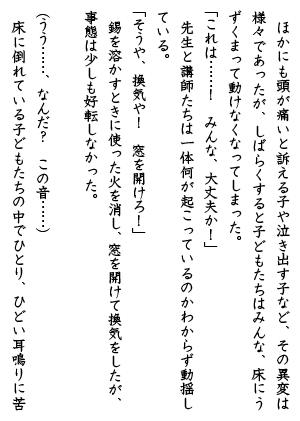 ほかにも頭が痛いと訴える子や泣き出す子など、その異変は
様々であったが、しばらくすると子どもたちはみんな、床にう
ずくまって動けなくなってしまった。
「これは……！　みんな、大丈夫か！」
先生と講師たちは一体何が起こっているのかわからず動揺し
ている。
「そうや、換気や！　窓を開けろ！」
錫を溶かすときに使った火を消し、窓を開けて換気をしたが、
事態は少しも好転しなかった。
（うう……、なんだ？　この音……）
床に倒れている子どもたちの中でひとり、ひどい耳鳴りに苦